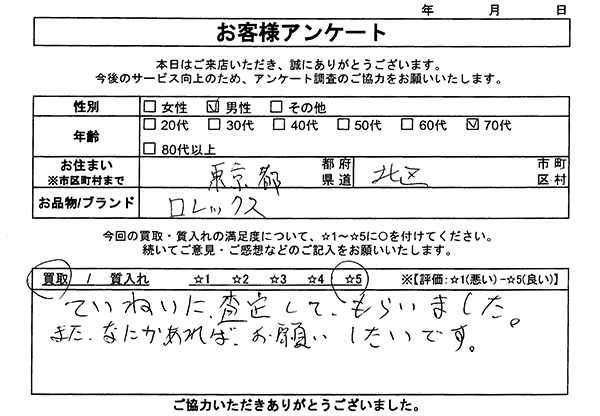 年 月 日
お客様アンケート
本日はご来店いただき、誠にありがとうございます。
今後のサービス向上のため、アンケート調査のご協力をお願いいたします。
性別 □ 女性 ☑ 男性 □ その他
年齢 □ 20代 □ 30代 □ 40代 □ 50代 □ 60代 ☑ 70代
□ 80代以上
お住まい ※市区町村まで 東京都 都府県道 北区 市町区村
お品物/ブランド ロレックス
今回の買取・質入れの満足度について、☆1～☆5に○を付けてください。
続いてご意見・ご感想などのご記入をお願いいたします。
買取 / 質入れ ☆1 ☆2 ☆3 ☆4 ☆5 ※【評価:☆1(悪い)-☆5(良い)】
ていねいに、査定して、もらいました。
また、なにかあれば、お願いしたいです。
ご協力いただきありがとうございました。